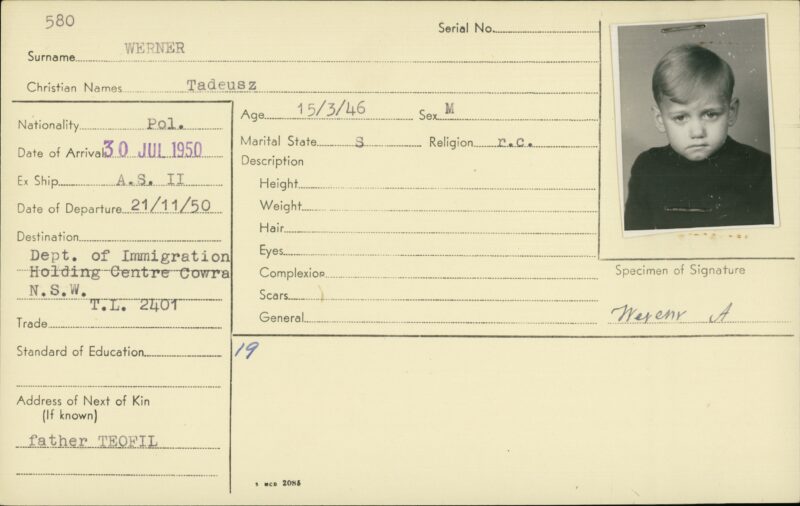 580
Serial No.
Surname WERNER
Christian Names Tadeusz
Nationality Pol.
Date of Arrival 30 JUL 1950
Ex Ship A.S. II
Date of Departure 21/11/50
Destination
Dept. of Immigration
Holding Centre Cowra
N.S.W.
T.L. 2401
Trade
Standard of Education
Address of Next of Kin
(If known)
father TEOFIL
Age 15/3/46 Sex M
Marital State S Religion r.c.
Description
Height
Weight
Hair
Eyes
Complexion
Scars
General
Specimen of Signature
A
19
MCD 2085